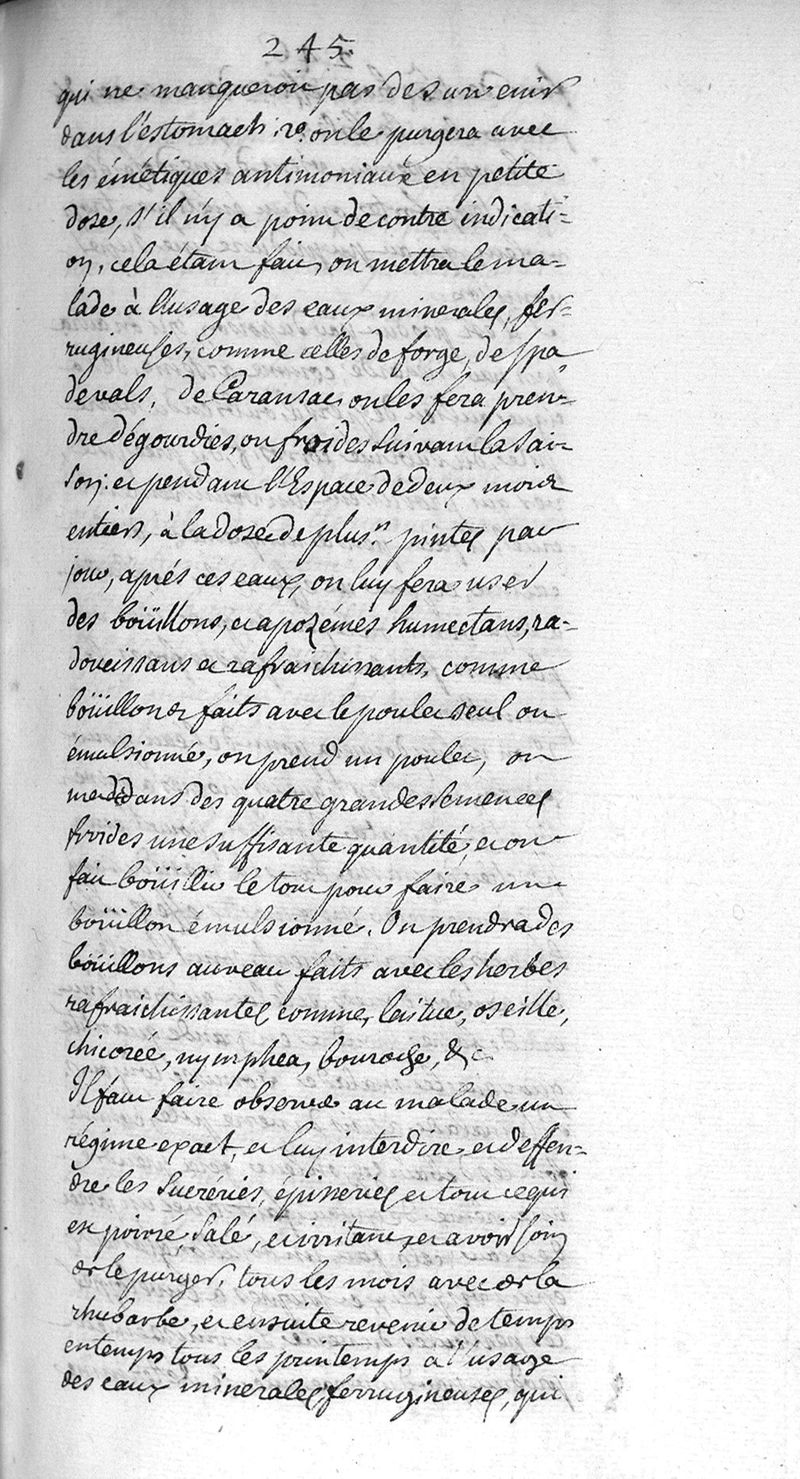 245.
qui ne manqueroit pas de survenir
dans l'estomach: 2º. on le purgera avec
les émétiques antimoniaux en petite
dose, s'il n'y a point de contre indicati-
on, cela étant fait, on mettra le ma-
lade à l'usage des eaux minerales, fer-
rugineuses, comme celles de forge, de spa
de vals, de Caransac on les fera pren-
dre dégourdies, ou froides suivant la sai-
son: et pendant l'Espace de deux mois
entiers, à la dose de plusrs. pintes par
jour, aprés ces eaux, on luy fera user
des boüillons, et apozémes humectans, ra-
doucissans et rafraichissants, comme
boüillons faits avec le poulet seul ou
émulsionné, on prend un poulet, on
met dedans des quatre grandes semences
froides une suffisante quantité, et on
fait boüillir le tout pour faire un
boüillon émulsionné. On prendra des
boüillons au veau faits avec les herbes
rafraichissantes comme, laitue, oseille,
chicorée, nymphea, bouroche, &c
Il faut faire observer au malade un
régime exact, et luy interdire et deffen-
dre les sucréries, épisseries et tout ce qui
est poivré, salé, et irritant, et avoir soin
de le purger, tous les mois avec de la
rhubarbe, et ensuite revenir de temps
en temps tous les printemps a l'usage
des eaux minerales ferrugineuses, qui